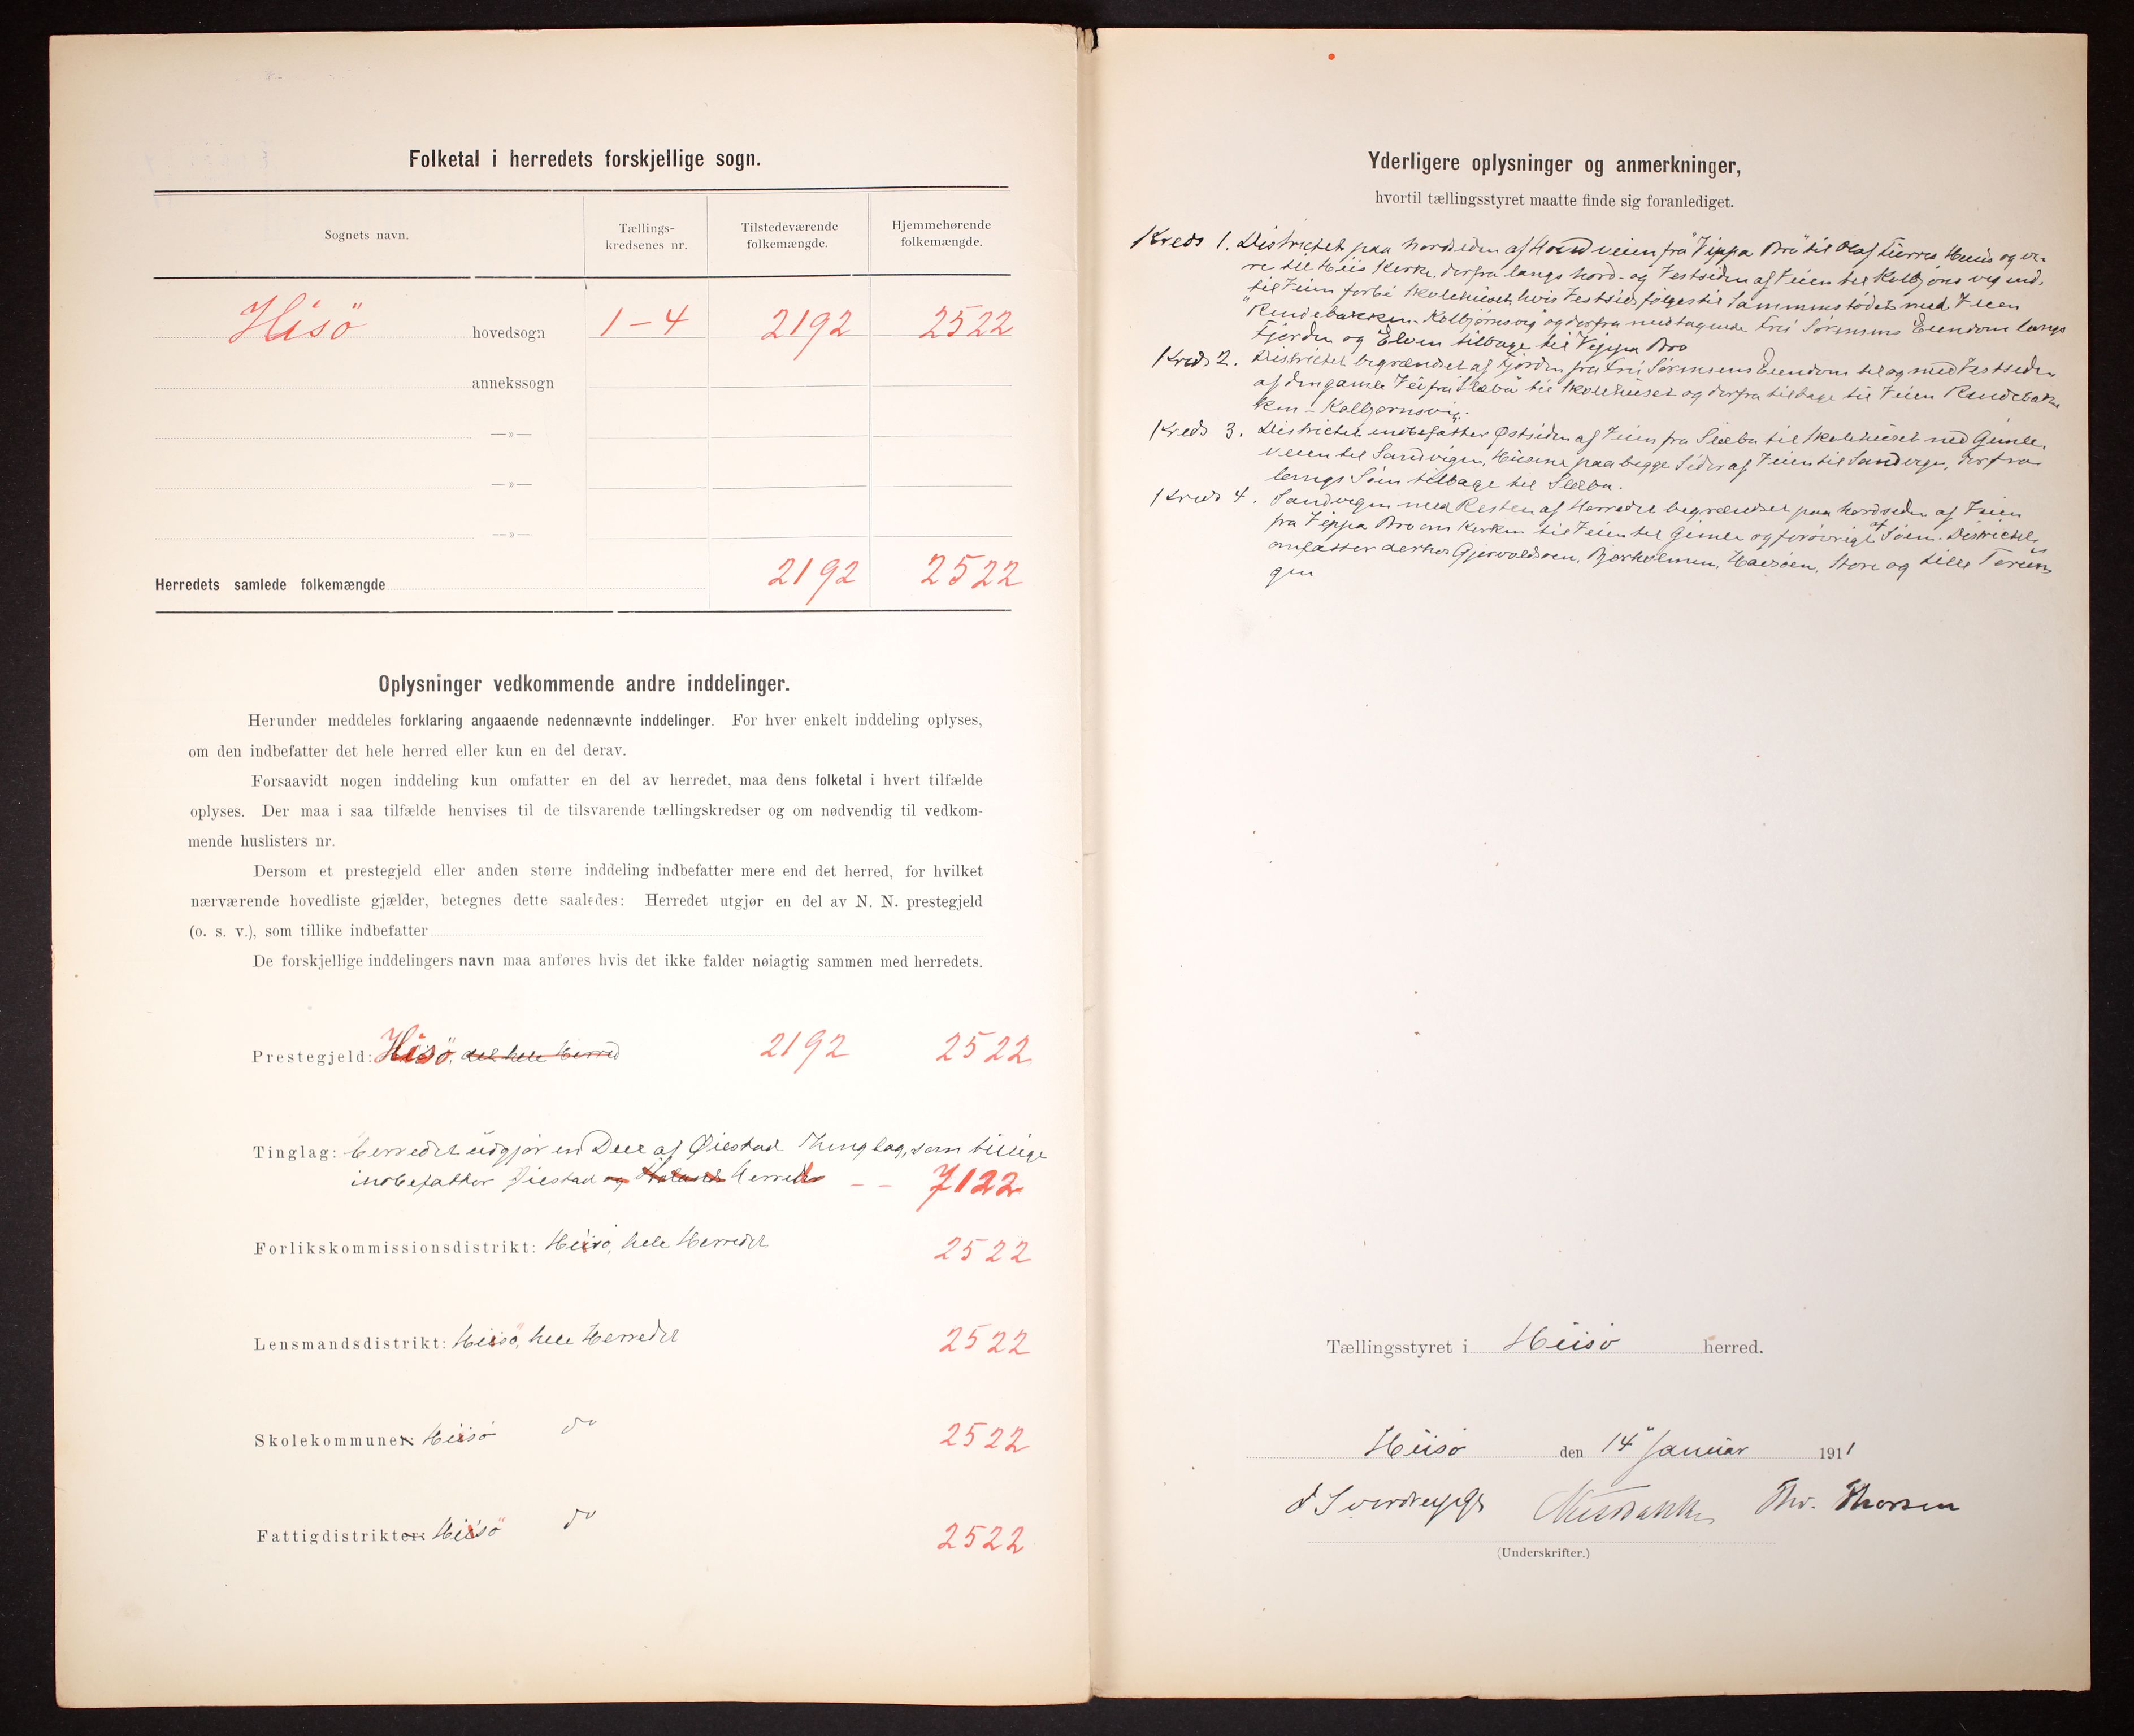 Folketal i herredets forskjellige sogn.
Sognets navn.
Tællings-
kredsenes nr.
Tilstedeværende
folkemængde.
Hjemmehørende
folkemængde.
Hisö hovedsogn 1-4 2192 2522
annekssogn
—»—
—»—
—»—
Herredets samlede folkemængde 2192 2522
Oplysninger vedkommende andre inddelinger.
Herunder meddeles forklaring angaaende nedennævnte inddelinger. For hver enkelt inddeling oplyses,
om den indbefatter det hele herred eller kun en del derav.
Forsaavidt nogen inddeling kun omfatter en del av herredet, maa dens folketal i hvert tilfælde
oplyses. Der maa i saa tilfælde henvises til de tilsvarende tællingskredser og om nødvendig til vedkom-
mende huslisters nr.
Dersom et prestegjeld eller anden større inddeling indbefatter mere end det herred, for hvilket
nærværende hovedliste gjælder, betegnes dette saaledes: Herredet utgjør en del av N. N. prestegjeld
(o. s. v.), som tillike indbefatter
De forskjellige inddelingers navn maa anføres hvis det ikke falder nøiagtig sammen med herredets.
Prestegjeld: Hisö, det hele Herred 2192 2522
Tinglag: Herredet udgjør en Deel af Øiestad Thinglag, som tillige
indbefatter Øiestad og Herred — — 7122
Forlikskommissionsdistrikt: Hiisö, hele Herredet 2522
Lensmandsdistrikt: Hiisö, hele Herredet 2522
Skolekommuner: Hiisö do 2522
Fattigdistrikter: Hiisö do 2522
Yderligere oplysninger og anmerkninger,
hvortil tællingsstyret maatte finde sig foranlediget.
Kreds 1. Districtet paa Nordsiden af Hovedveien fra "Vippa Bro" til Olaf Huus og
til Hiis Kirke, derfra langs Nord- og Vestsiden af Veien til Kolbjønsvig
til Veien forbi Skolehuset, hvis Vestside følges til Sammenstødet med Veien
"Rendebakken-Kolbjørnsvig" og derfra medtagende Sørensens Eiendom langs
Fjorden og Elven tilbage til Vippa Bro
Kreds 2. Districtet begrændset af Fjorden fra Sørensens Eiendom til og med Vestsiden
af den gamle Vei fra Slæbu til Skolehuset og derfra tilbage til Veien Rendebak
ken - Kolbjørnsvig.
Kreds 3. Districtet indbefatter Østsiden af Veien fra Slæbu til Skolehuset ned Gimle,
veien til Sandvigen, Husene paa begge Sider af Veien til Sandvigen, derfra
langs Søen tilbage til Slæbu.
Kreds 4. Sandvigen med Resten af Herredet begrændset paa Nordsiden af Veien
fra Vippa Bro om Kirken til Veien til Gimle og forøvrigt af Søen. Districtet
omfatter derhos Gjervoldsøen, Bjørholmen, Havsøen, Store og Lille Torun
gen
Tællingsstyret i Hiisö herred.
Hiisö den 14 Januar 1911
Thv. Thorsen
(Underskrifter.)